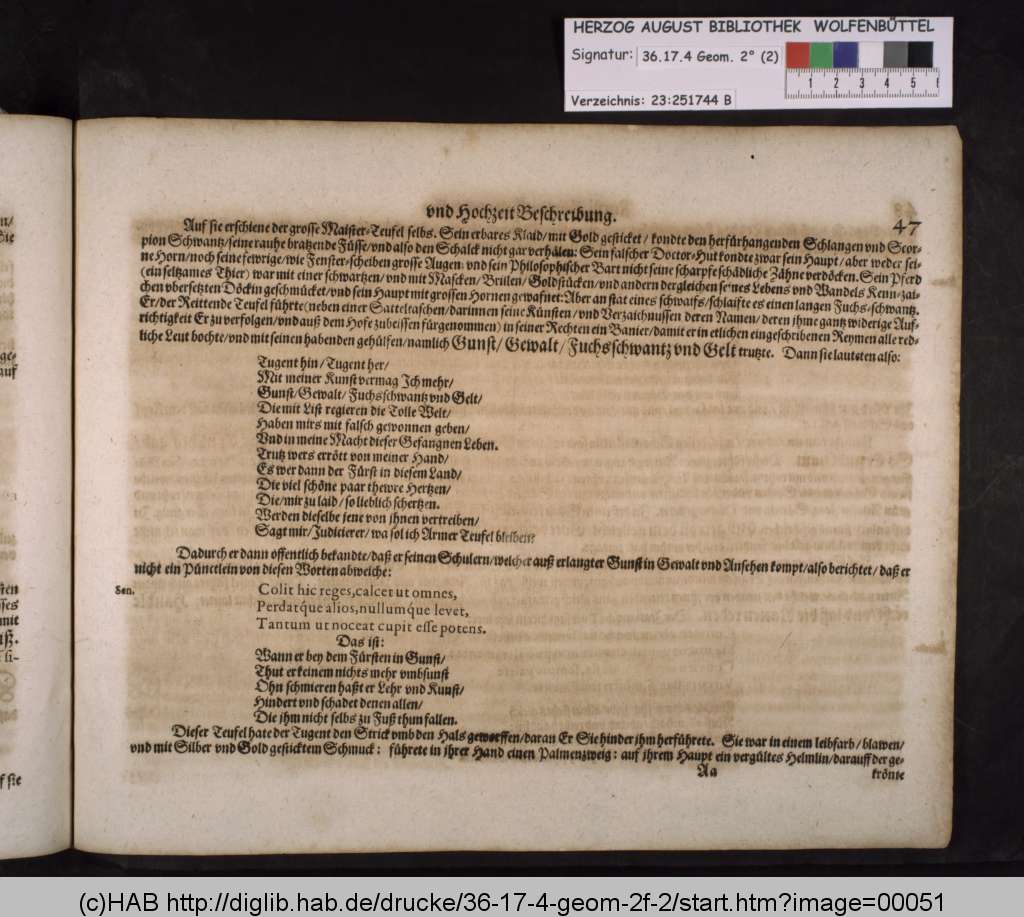 HERZOG AUGUST BIBLIOTHEK WOLFENBÜTTEL
Signatur: 36.17.4 Geom. 2° (2)
1 2 3 4 5 6
Verzeichnis: 23:251744 B
vnd Hochzeit Beschreibung.
47
Auf sie erschiene der grosse Maister-Teufel selbs. Sein erbares Klaid/ mit Gold gesticket/ kondte den herfürhangenden Schlangen vnd Scor-
pion Schwantz/ seine rauhe bratzende Füsse/ vnd also den Schalck nicht gar verhälen: Sein falscher Doctor-Hut kondte zwar sein Haupt/ aber weder sei-
ne Horn/ noch seine fewrige/ wie Fenster-scheiben grosse Augen: vnd sein Philosophischer Bart nicht seine scharpfe schädliche Zähne verdöcken. Sein Pferd
(ein seltzames Thier) war mit einer schwartzen/ vnd mit Mascken/ Brillen/ Goldstücken/ vnd andern dergleichen seines Lebens vnd Wandels Kenn-zai-
chen vbersetzten Döckin geschmücket/ vnd sein Haupt mit grossen Hornen gewafnet: Aber an stat eines schwaifs/ schlaifte es einen langen Fuchs-schwantz.
Er/ der Reittende Teufel führte (neben einer Satteltaschen/ darinnen seine Künsten/ vnd Verzaichnussen deren Namen/ deren jhme gantz widerige Auf-
richtigkeit Er zu verfolgen/ vnd auß dem Hofe zubeissen fürgenommen) in seiner Rechten ein Banier/ damit er in etlichen eingeschribenen Reymen alle red-
liche Leut bochte/ vnd mit seinen habenden gehülfen/ namlich Gunst/ Gewalt/ Fuchsschwantz vnd Gelt trutzte. Dann sie lautsten also:
Tugent hin/ Tugent her/
Mit meiner Kunst vermag Jch mehr/
Gunst/ Gewalt/ Fuchsschwantz vnd Gelt/
Die mit List regieren die Tolle Welt/
Haben mirs mit falsch gewonnen geben/
Vnd in meine Macht dieser Gefangnen Leben.
Trutz wers errött von meiner Hand/
Es wer dann der Fürst in diesem Land/
Die viel schöne paar thewre Hertzen/
Die/ mir zu laid/ so lieblich schertzen.
Werden dieselbe jene von jhnen vertreiben/
Sagt mir/ Judicierer/ wa sol ich Armer Teufel bleiben?
Dadurch er dann offentlich bekandte/ daß er seinen Schulern/ welcher auß erlangter Gunst in Gewalt vnd Ansehen kompt/ also berichtet/ daß er
nicht ein Pünctlein von diesen Worten abweiche:
Sen.
Colit hic reges, calcet ut omnes,
Perdatq́ue alios, nullumq́ue levet,
Tantum ut noceat cupit esse potens.
Das ist:
Wann er bey dem Fürsten in Gunst/
Thut er keinem nichts mehr vmbsunst
Ohn schmieren haßt er Lehr vnd Kunst/
Hindert vnd schadet denen allen/
Die jhm nicht selbs zu Fuß thun fallen.
Dieser Teufel hate der Tugent den Strick vmb den Hals geworffen/ daran Er Sie hinder jhm herführete. Sie war in einem leibfarb/ blawen/
vnd mit Silber vnd Gold gesticktem Schmuck: führete in jhrer Hand einen Palmenzweig: auf jhrem Haupt ein vergültes Helmlin/ darauff der ge-
Aa
krönte
(c)HAB http://diglib.hab.de/drucke/36-17-4-geom-2f-2/start.htm?image=00051